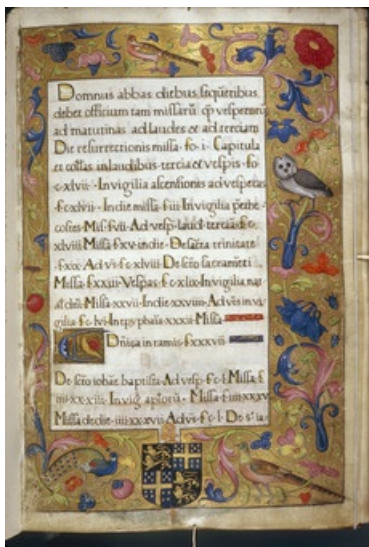 Domnus abbas diebus sequētibus
debet officium tam missarū qp vesperarū
ad matutinas ad laudes et ad terciam
Die resurrectionis missa · fo · i · Capitula
et coll'as in laudibus tercia et vespis · fo
c · xlvii · In vigilia ascensionis ad vesperas
f · c · xlvii · In die missa · f · iii · In vigilia
costes · Mis' f · vii · Ad vesp · laud · tercia · f · c ·
xlviii Missa f · xv · in die · De sācta trinitate
f · xix · Ad vs' f · c · xlviii De sc̄to sacramēti
Missa · f · xxiii · Vesp̄as · f · c · xlix · In vigilia nat
Missa · xxvii · In die xxviii · Ad vs' in vi
gilia · f · c · lvi · In epyphaīa · xxxii · Missa
Dn̄ica in ramis · f · xxxvii ·
De sc̄to iohāe baptista · Ad vesp · f · c · l · Missa f
iii · xx · xii · In vig' aplorū · Missa · f · iiii · xxv
Missa de die · iiii · xx · vii Ad vs' · f · c · l ·